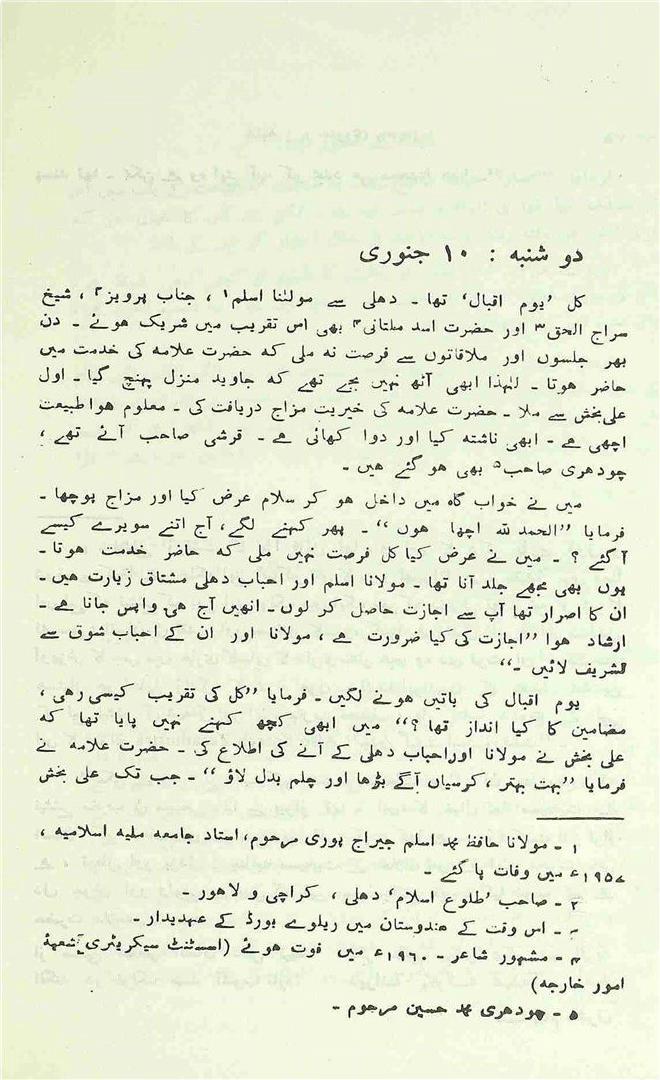 دو شنبہ : ۱۰ جنوری
کل ’یوم اقبال‘ تھا ۔ دھلی سے مولٰنا اسلم۱ ، جناب پرویز۲ ، شیخ
سراج الحق۳ اور حضرت اسد ملتانی۴ بھی اس تقریب میں شریک ہوئے ۔ دن
بھر جلسوں اور ملاقاتوں سے فرصت نہ ملی کہ حضرت علامہ کی خدمت میں
حاضر ہوتا ۔ لہٰذا ابھی آٹھ نہیں بجے تھے کہ جاوید منزل پہنچ گیا ۔ اول
علی بخش سے ملا ۔ حضرت علامہ کی خیریت مزاج دریافت کی ۔ معلوم ہوا طبیعت
اچھی ہے ۔ ابھی ناشتہ کیا اور دوا کھائی ہے ۔ قرشی صاحب آئے تھے ،
چودھری صاحب۵ بھی ہو گئے ہیں ۔
میں نے خواب گاہ میں داخل ہو کر سلام عرض کیا اور مزاج پوچھا ۔
فرمایا ”الحمد للہ اچھا ہوں“ ۔ پھر کہنے لگے، آج اتنے سویرے کیسے
آ گئے ؟ ۔ میں نے عرض کیا کل فرصت نہیں ملی کہ حاضر خدمت ہوتا ۔
یوں بھی مجھے جلد آنا تھا ۔ مولانا اسلم اور احباب دھلی مشتاق زیارت ہیں ۔
ان کا اصرار تھا آپ سے اجازت حاصل کر لوں ۔ انھیں آج ہی واپس جانا ہے ۔
ارشاد ہوا ”اجازت کی کیا ضرورت ہے ، مولانا اور ان کے احباب شوق سے
تشریف لائیں ۔“
یوم اقبال کی باتیں ہونے لگیں ۔ فرمایا ”کل کی تقریب کیسی رہی ،
مضامین کا کیا انداز تھا ؟“ میں ابھی کچھ کہنے نہیں پایا تھا کہ
علی بخش نے مولانا اور احباب دھلی کے آنے کی اطلاع کی ۔ حضرت علامہ نے
فرمایا ”بہت بہتر ، کرسیاں آگے بڑھا اور چلم بدل لاؤ“ ۔ جب تک علی بخش
۱ ۔ مولانا حافظ محمد اسلم جیراج پوری مرحوم، استاد جامعہ ملیہ اسلامیہ ،
۱۹۵۷ء میں وفات پا گئے ۔
۲ ۔ صاحب ’طلوع اسلام‘ دھلی ، کراچی و لاھور ۔
۳ ۔ اس وقت کے ھندوستان میں ریلوے بورڈ کے عہدیدار ۔
۴ ۔ مشہور شاعر ۔ ۱۹۶۰ء میں فوت ہوئے (اسسٹنٹ سیکریٹری شعبۂ
امور خارجہ)
۵ ۔ چودھری محمد حسین مرحوم ۔